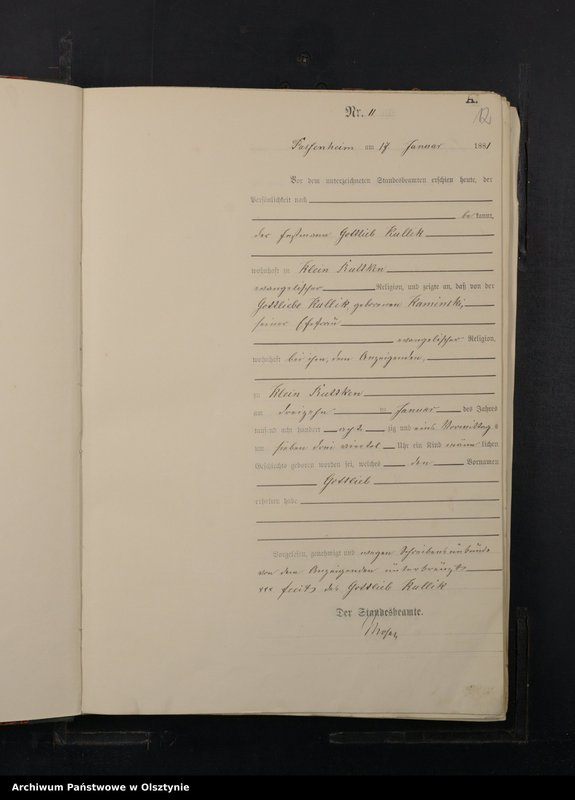 A.
12
Nr. 11
Passenheim am 17 Januar 1881
Vor dem unterzeichneten Standesbeamten erschien heute, der
Persönlichkeit nach
be kannt,
der Gottlieb Kullik
wohnhaft zu Klein Ruttken
evangelischer Religion, und zeigte an, daß von der
Gottliebe Kullik, geborenen Kaminski,
seiner Ehefrau
evangelischer Religion,
wohnhaft bei ihm, dem Anzeigenden,
zu Klein Ruttken
am dreizehn ten Januar des Jahres
tausend acht hundert acht zig und eins Vormittag s
um sieben drei viertel Uhr ein Kind männ lichen
Geschlechts geboren worden sei, welches den Vornamen
Gottlieb
erhalten habe
Vorgelesen, genehmigt und wegen Schreibensunkunde
von dem Anzeigenden unterkreuzt
xxx des Gottlieb Kullik
Der Standesbeamte.
Archiwum Państwowe w Olsztynie